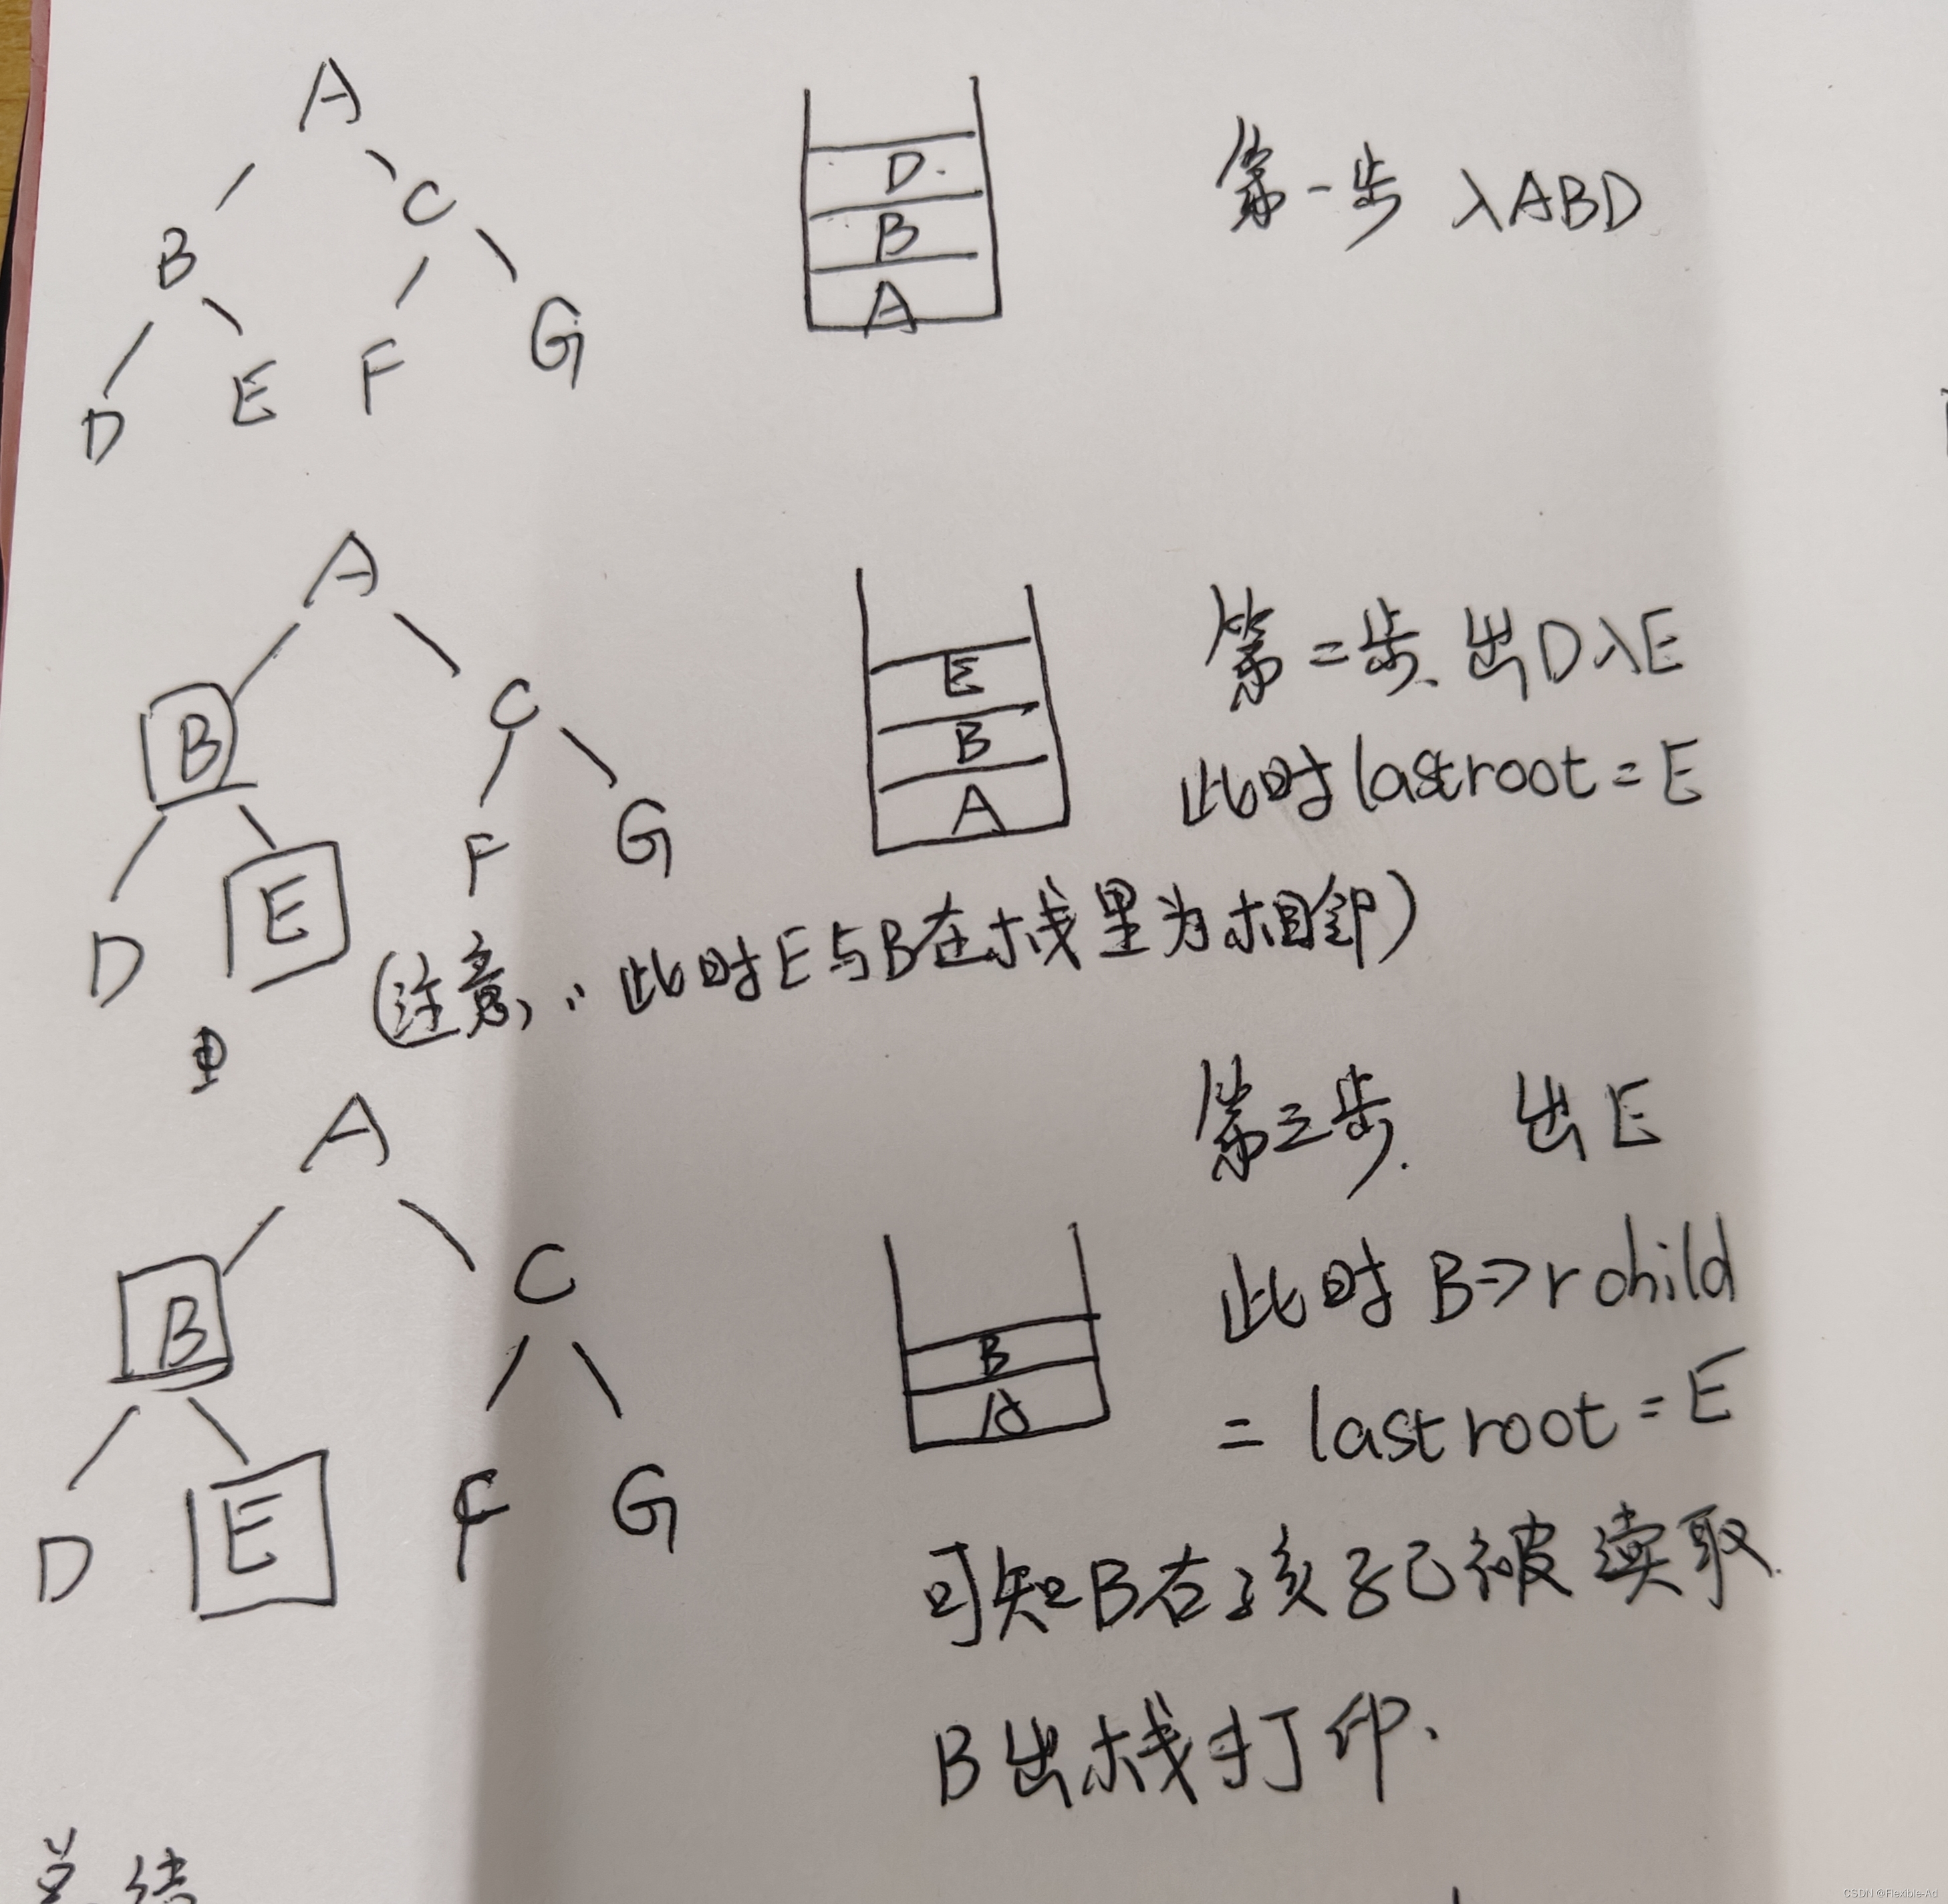 A
B
C
D
E
F
G
D
B
A
第一步 入ABD
A
B
C
D
E
F
G
E
B
A
第二步、出D入E
此时lastroot=E
(注意,:此时E与B在栈里为相邻)
A
B
C
D
E
F
G
B
A
第三步. 出E
此时B->rchild
=lastroot=E
可知B右孩子已被读取.
B出栈打印.
总结
CSDN @Flexible-Ad